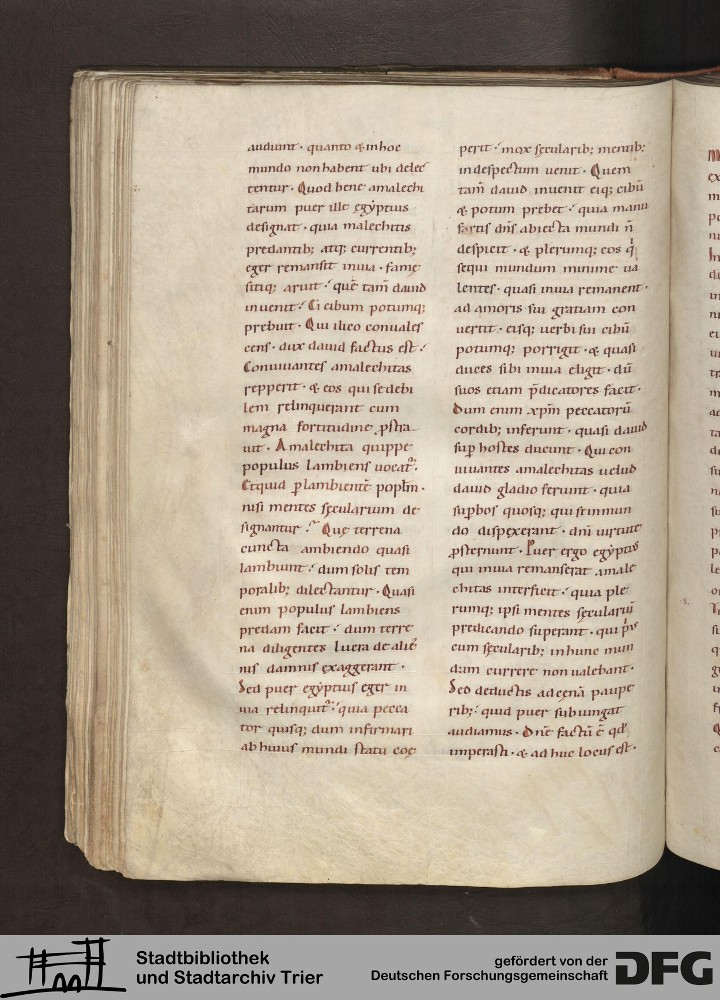 audiunt · quanto & in hoc
mundo non habent ubi delec
tentur · Quod bene amalechi
tarum puer ille egẏptius
designat · quia malechitis
predantib; atq; currentib;
eger remansit in uia · fame
sitiq; aruit · quē tam̄ dauid
inuenit · Ei cibum potumq;
prebuit · Qui ilico conuales
cens · dux dauid factus est ·
Conuiuantes amalechitas
repperit · & eos qui se debi
lem relinquerant cum
magna fortitudine ꝓstra
uit · Amalechita quippe
populus lambiens uocat᷑ ·
Et quid ꝑ lambientē popl̄m ·
nisi mentes sęcularium de
signantur · Quę terrena
cuncta ambiendo quasi
lambunt · dum solis tem
poralib; dilectantur · Quasi
enim populus lambiens
predam facit · dum terre
na diligentes lucra de alie
nis damnis exaggerant ·
Sed puer egẏptius eger in
uia relinquit᷑ · quia pecca
tor quisq; dum infirmari
ab huius mundi statu coę
perit · mox sęcularib; mentib;
in despectum uenit · Quem
tam̄ dauid inuenit eiq; cibū
& potum prebet · quia manu
fortis dn̄s abiecta mundi n̄
despicit · & plerumq; eos qͥ
sequi mundum minime ua
lentes · quasi in uia remanent ·
ad amoris sui gratiam con
uertit · eisq; uerbi sui cibū
potumq; porrigit · & quasi
duces sibi in uia eligit · dū
suos etiam p̄dicatores facit ·
Dum enim xp̄m peccatorū
cordib; inferunt · quasi dauid
sup̄ hostes ducunt · Qui con
uiuantes amalechitas uelud
dauid gladio feriunt · quia
sup̄bos quosq; qui se in mun
do dispexerant · dn̄i uirtute
ꝓsternunt · Puer ergo egẏptius
qui in uia remanserat amale
chitas interficit · quia ple
rumq; ipsi mentes sęculariū
predicando superant · qui pͥus
cum sęcularib; in hunc mun
dum currere non ualebant ·
Sed deductis ad cęnā paupe
rib; · quid puer subiungat
audiamus · Dn̄e factū ē qd̓
imperasti · & adhuc locus est ·
Stadtbibliothek
und Stadtarchiv Trier
gefördert von der
Deutschen Forschungsgemeinschaft
DFG